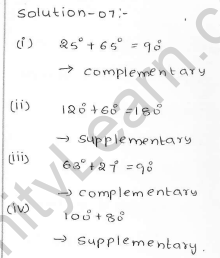 Solution-07:-
(i) 25° + 65° = 90°
→ complementary
(ii) 120° + 60° = 180°
→ supplementary
(iii) 63° + 27° = 90°
→ complementary
(iv) 100° + 80°
→ supplementary.